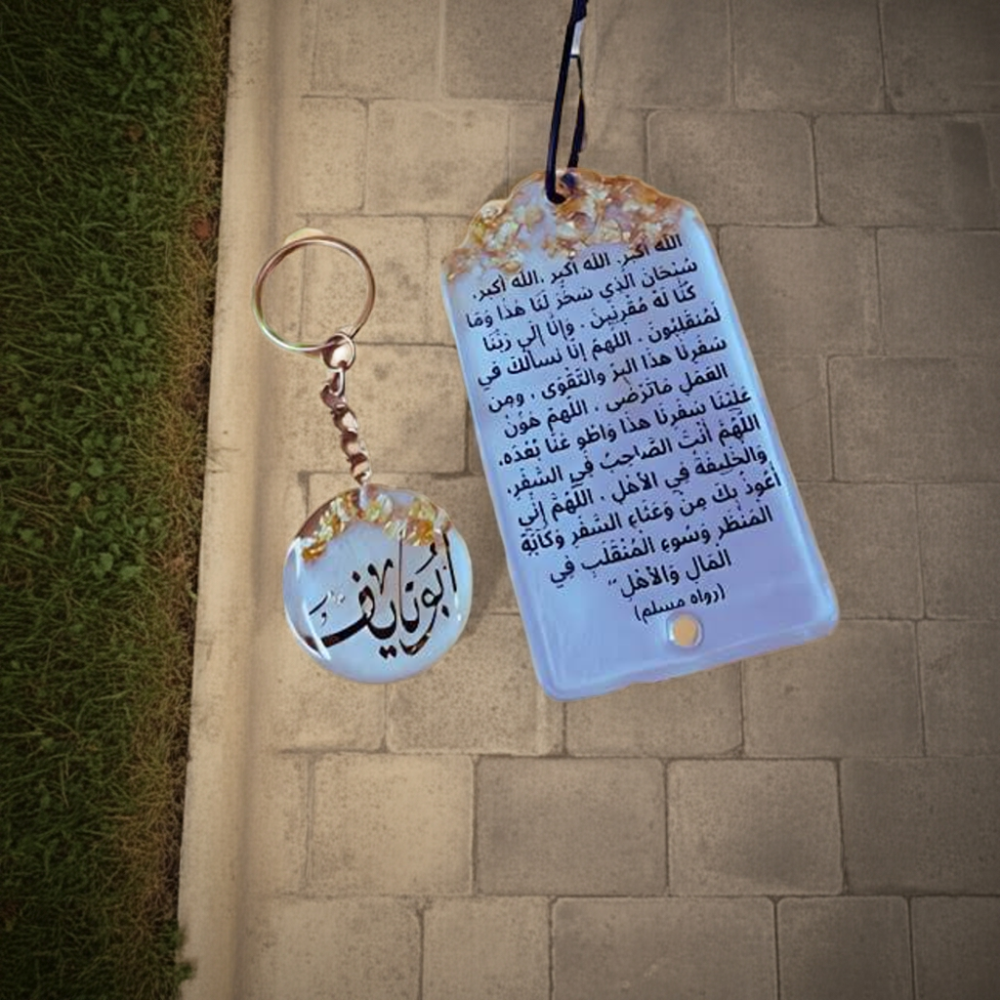 الله اكبر. الله اكبر .الله اكبر.
سُبْحَانَ الَّذِي سَخَّرَ لَنَا هَذَا وَمَا
كُنَّا لَهُ مُقْرِنِينَ . وَإِنَّا إِلَى رَبِّنَا
لَمُنقَلِبُونَ . اللهم إنا نسألك في
سَفَرِنَا هذا البِرَّ والتَّقْوَى ، ومِنَ
العَمَلِ مَاتَرْضَى ، اللهم هَوِّن
عَلَيْنَا سَفَرِنَا هذا وَاطْوِ عَنَّا بُعْدَه،
اللَّهُمَّ أَنْتَ الصَّاحِبُ فِي السَّفَرِ،
وَالخَلِيفَةُ فِي الأَهْلِ ، اللَّهُمَّ إِنِّي
أَعُوذُ بِكَ مِنْ وَعْثَاءِ السَّفَرِ وَكَآبَةِ
المَنْظَرِ وَسُوءِ المُنْقَلَبِ فِي
المَالِ وَالأَهْلِ"
(رواه مسلم)
أبو نايف